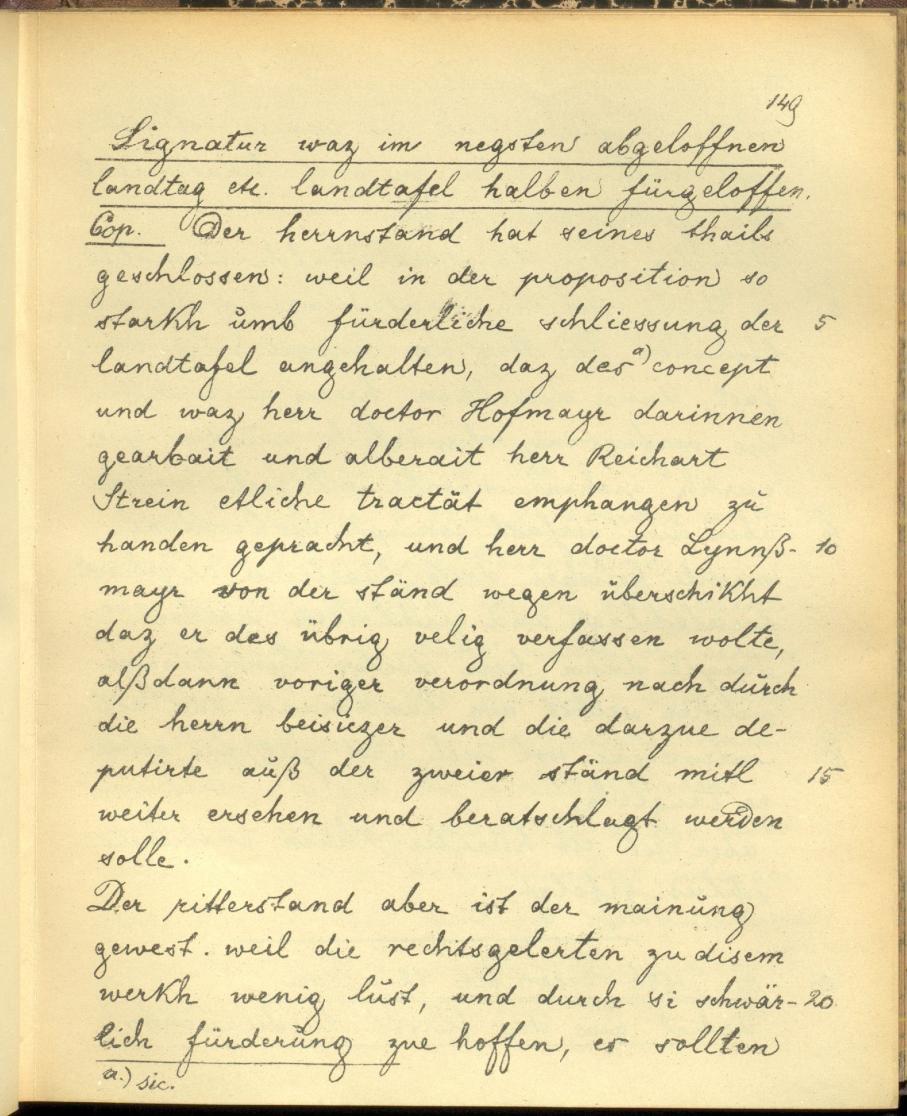 149
Signatur waz im negsten abgeloffnen
landtag etc. landtafel halben fürgeloffen.
Cop. Der herrnstand hat seines thails
geschlossen: weil in der proposition so
starkh ŭmb fürderliche schliessung der 5
landtafel angehalten, daz des a) concept
und waz herr doctor Hofmayr darinnen
gearbait und alberait herr Reichart
Strein etliche tractät emphangen zŭ
handen gepracht, und herr doctor Lynnß- 10
mayr von der ständ wegen überschikht
daz er des übrig velig verfassen wolte,
alßdann voriger verordnung nach dŭrch
die herrn beisiczer und die darzue de-
putirte aŭß der zweier ständ mitl 15
weiter ersehen und beratschlagt werden
solle.
Der ritterstand aber ist der mainŭng
gewest. weil die rechtsgelerten zu disem
werkh wenig lŭst, und durch si schwär- 20
lich fürderŭng zue hoffen, es sollten
a.) sic.